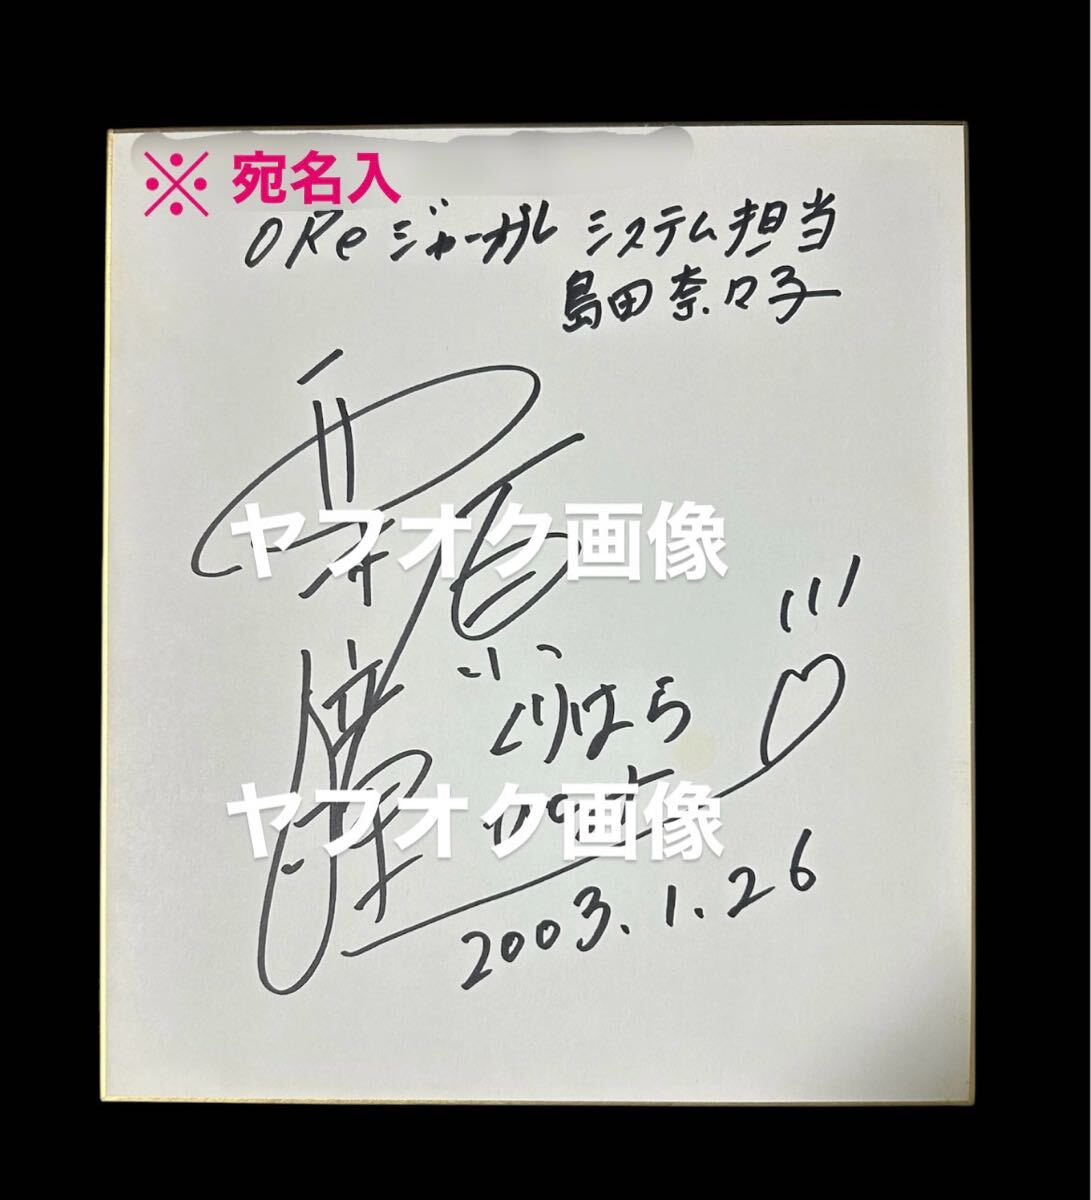 ※ 宛名入
OReジャーナル システム担当
島田奈々子
栗原
瞳
ヤフオク画像
くりはら
ヤフオク画像
2003.1.26